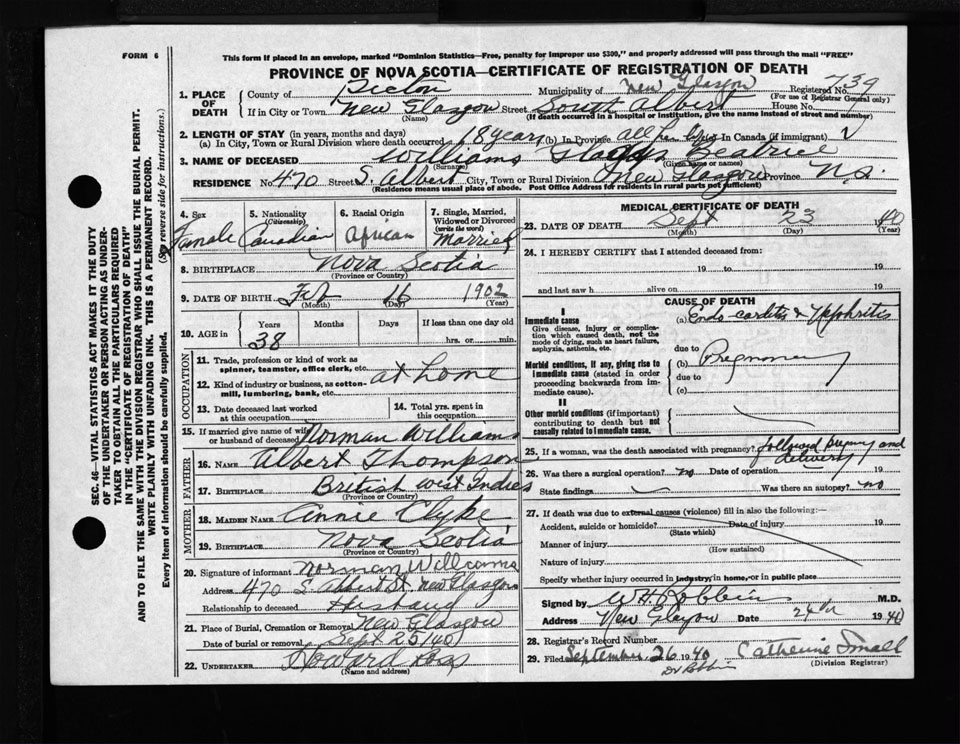 FORM 6
This form if placed in an envelope, marked "Dominion Statistics—Free, penalty for improper use $300," and properly addressed will pass through the mail "FREE"
PROVINCE OF NOVA SCOTIA—CERTIFICATE OF REGISTRATION OF DEATH
1. PLACE OF DEATH
County of Pictou Municipality of New Glasgow Registered No. 739
(For use of Registrar General only)
If in City or Town New Glasgow Street South Albert House No.
(Name) (If death occurred in a hospital or institution, give the name instead of street and number)
2. LENGTH OF STAY (in years, months and days)
(a) In City, Town or Rural Division where death occurred 18 years (b) In Province all her life In Canada (if immigrant)
3. NAME OF DECEASED Williams Gladys Beatrice
(Surname) (Given name or names)
RESIDENCE No. 470 Street S. Albert City, Town or Rural Division New Glasgow Province N.S.
(Residence means usual place of abode. Post Office Address for residents in rural parts not sufficient)
4. Sex Female
5. Nationality (Citizenship) Canadian
6. Racial Origin African
7. Single, Married, Widowed or Divorced (write the word) Married
8. BIRTHPLACE Nova Scotia
(Province or Country)
9. DATE OF BIRTH Feb 16 1902
(Month) (Day) (Year)
10. AGE in Years Months Days If less than one day old
38 hrs. or min.
OCCUPATION
11. Trade, profession or kind of work as spinner, teamster, office clerk, etc. at home
12. Kind of industry or business, as cotton-mill, lumbering, bank, etc.
13. Date deceased last worked at this occupation
14. Total yrs. spent in this occupation
15. If married give name of wife or husband of deceased Norman Williams
FATHER
16. NAME Albert Thompson
17. BIRTHPLACE British West Indies
(Province or Country)
MOTHER
18. MAIDEN NAME Annie Clyke
19. BIRTHPLACE Nova Scotia
(Province or Country)
20. Signature of informant Norman Williams
Address 470 S Albert St. New Glasgow
Relationship to deceased Husband
21. Place of Burial, Cremation or Removal New Glasgow
Date of burial or removal Sept 25/40
22. UNDERTAKER Howard Ross
(Name and address)
MEDICAL CERTIFICATE OF DEATH
23. DATE OF DEATH Sept 23 1940
(Month) (Day) (Year)
24. I HEREBY CERTIFY that I attended deceased from:
19 to 19
and last saw h alive on 19
CAUSE OF DEATH
I
Immediate cause
Give disease, injury or complication which caused death, not the mode of dying, such as heart failure, asphyxia, asthenia, etc.
(a) Endo-carditis & Nephritis
due to
Morbid conditions, if any, giving rise to immediate cause (stated in order proceeding backwards from immediate cause).
(b) Pregnancy
due to
(c)
II
Other morbid conditions (if important) contributing to death but not causally related to immediate cause.
25. If a woman, was the death associated with pregnancy? followed pregnancy and delivery
26. Was there a surgical operation? no Date of operation 19
State findings Was there an autopsy? no
27. If death was due to external causes (violence) fill in also the following:—
Accident, suicide or homicide? Date of injury 19
(State which)
Manner of injury
(How sustained)
Nature of injury
Specify whether injury occurred in industry, in home, or in public place
Signed by W H Robbins M.D.
Address New Glasgow Date 24th 1940
28. Registrar's Record Number
29. Filed September 26 1940 Catherine Small
Dr Robbins (Division Registrar)
SEC. 46—VITAL STATISTICS ACT MAKES IT THE DUTY
OF THE UNDERTAKER OR PERSON ACTING AS UNDER-
TAKER TO OBTAIN ALL THE PARTICULARS REQUIRED
IN THE "CERTIFICATE OF REGISTRATION OF DEATH"
AND TO FILE THE SAME WITH THE DIVISION REGISTRAR WHO SHALL ISSUE THE BURIAL PERMIT.
WRITE PLAINLY WITH UNFADING INK. THIS IS A PERMANENT RECORD.
Every item of information should be carefully supplied. (See reverse side for instructions.)